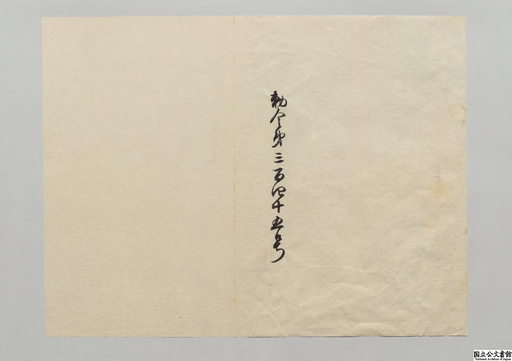 勅令第三百四十五号
国立公文書館
National Archives of Japan